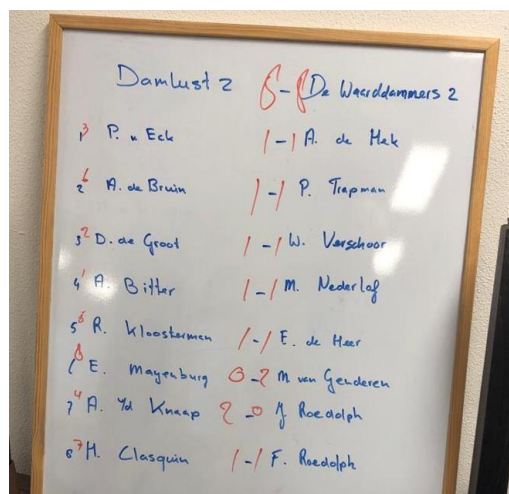 Damlust 2 8-8 De Waarddammers 2
1 3 P. v Eck 1-1 A. de Hek
2 6 A. de Bruin 1-1 P. Trapman
3 2 D. de Groot 1-1 W. Verschoor
4 1 A. Bitter 1-1 M. Nederlof
5 5 R. Kloosterman 1-1 E. de Heer
8 E. Mayenburg 0-2 M van Genderen
7 4 A. vd Knaap 2-0 J Roedolph
8 7 H. Clasquin 1-1 F. Roedolph